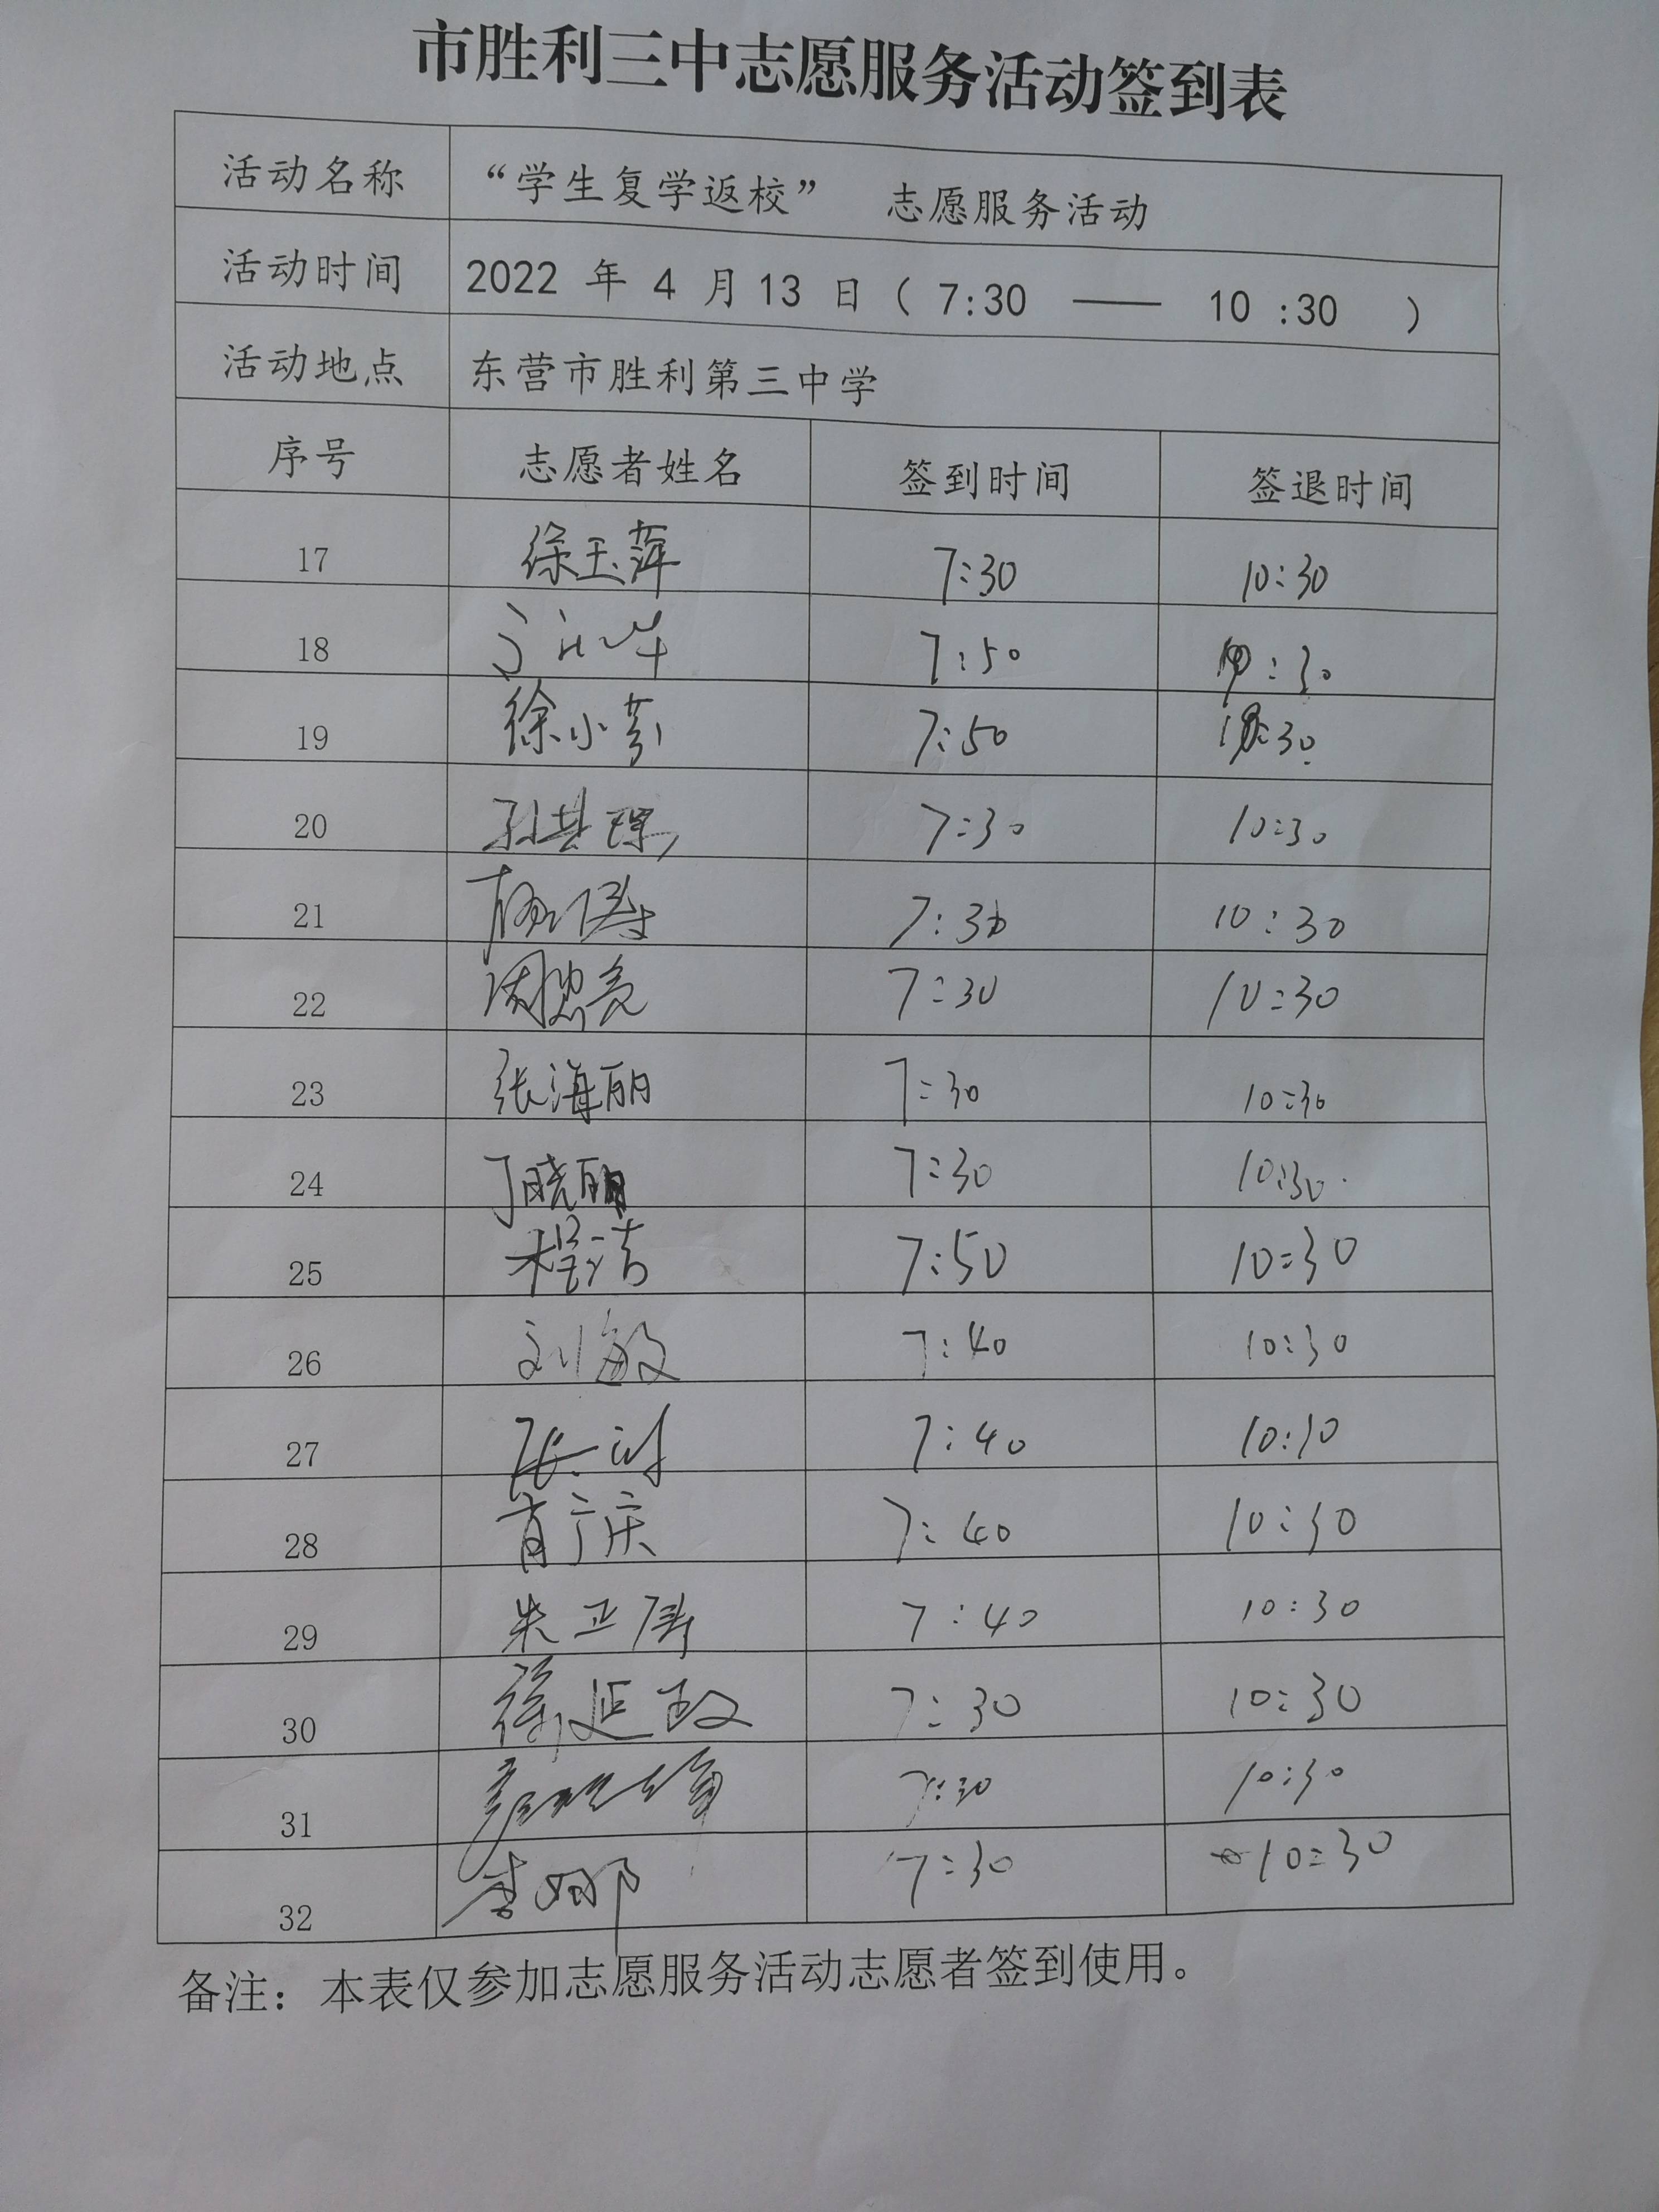 市胜利三中志愿服务活动签到表
活动名称 “学生复学返校” 志愿服务活动
活动时间 2022 年 4 月 13 日（ 7:30 —— 10 :30 ）
活动地点 东营市胜利第三中学
序号 志愿者姓名 签到时间 签退时间
17 徐玉萍 7:30 10:30
18 7:50 10:30
19 徐小芬 7:50 10:30
20 7:30 10:30
21 7:30 10:30
22 周忠亮 7:30 10:30
23 张海丽 7:30 10:30
24 丁晓丽 7:30 10:30
25 程洁 7:50 10:30
26 刘敏 7:40 10:30
27 7:40 10:30
28 肖广庆 7:40 10:30
29 朱卫 7:40 10:30
30 徐延玫 7:30 10:30
31 7:30 10:30
32 李娜 7:30 10:30
备注：本表仅参加志愿服务活动志愿者签到使用。